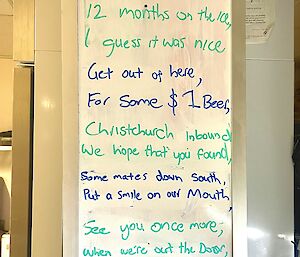 12 months on the Ice,
I guess it was nice
Get out of here,
For Some $1 Beer,
Christchurch Inbound
We hope that you found,
Some mates down South,
Put a smile on our Mouth,
See you once more,
when we're out the Door,